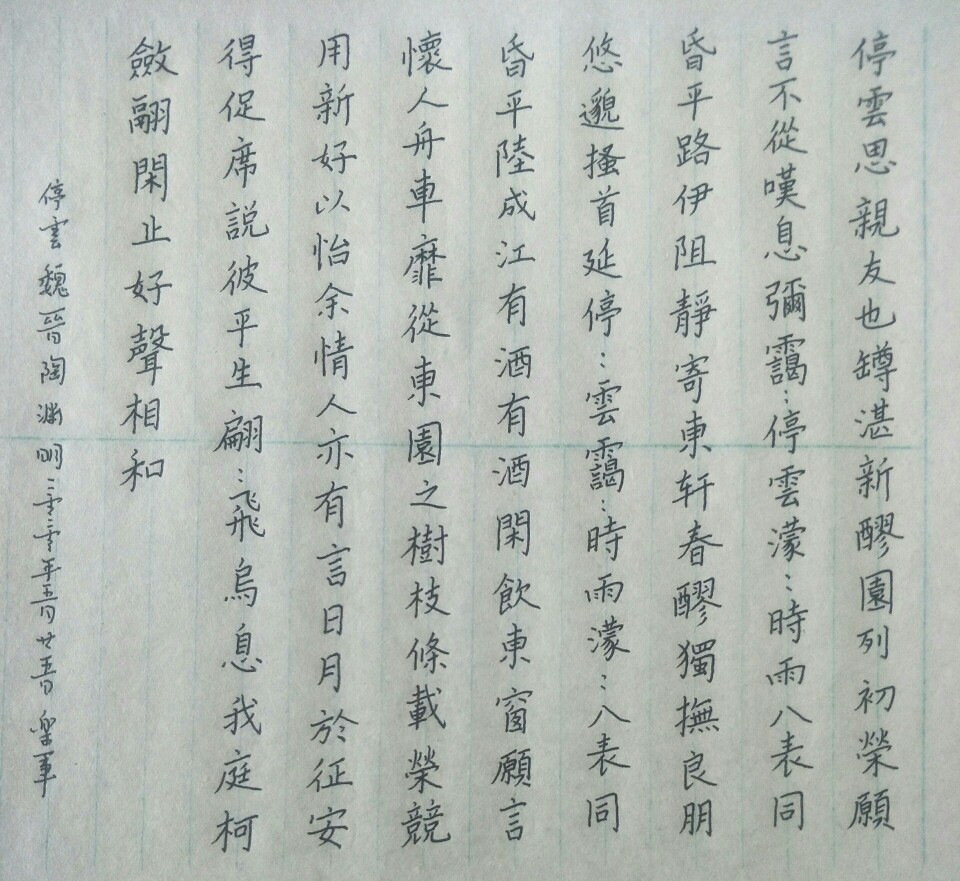 停雲思親友也罇湛新醪園列初榮願
言不從嘆息彌靄：停雲濛：時雨八表同
昏平路伊阻靜寄東轩春醪獨撫良朋
悠邈搔首延停：雲靄：時雨濛：八表同
昏平陸成江有酒有酒閑飲東窗願言
懷人舟車靡從東園之樹枝條載榮競
用新好以怡余情人亦有言日月於征安
得促席説彼平生翩：飛鳥息我庭柯
斂翮閑止好聲相和
停雲魏晉陶淵明二零二零年五月廿五日